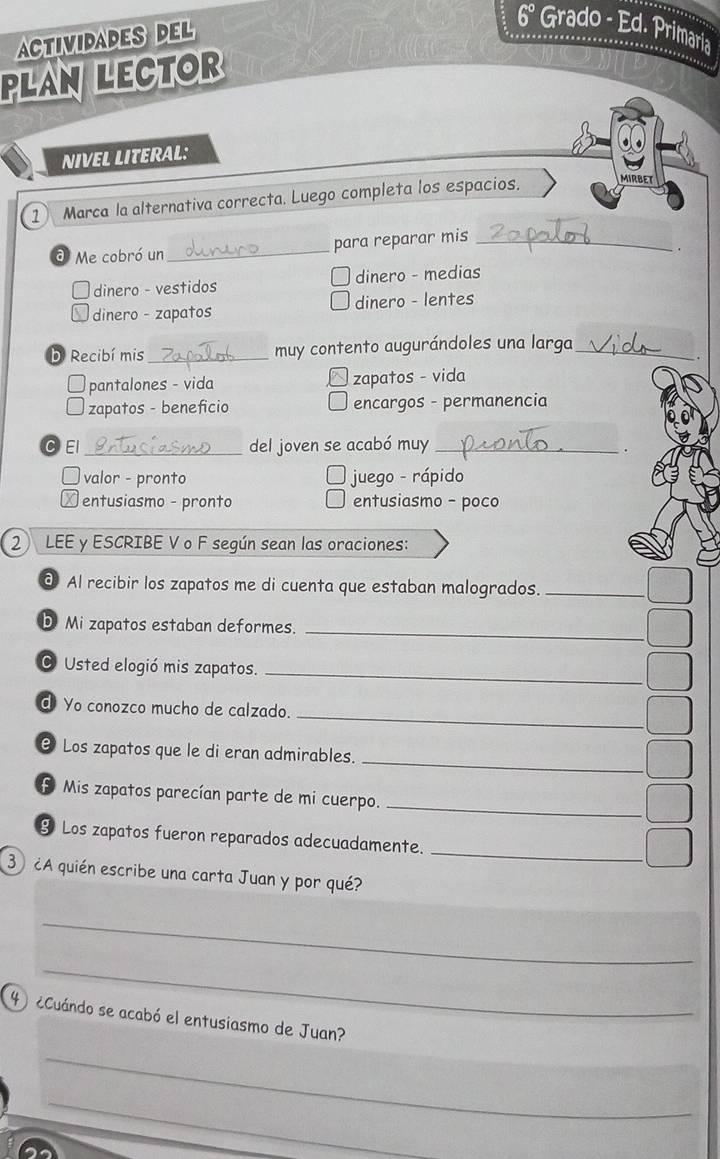 ACTIVIDADES DEL
PLAN LECTOR
6° Grado - Ed. Primaria
NIVEL LITERAL:
MIRBET
1 Marca la alternativa correcta. Luego completa los espacios.
a Me cobró un dinero para reparar mis zapatos.
dinero - vestidos dinero - medias
dinero - zapatos dinero - lentes
b Recibí mis zapatos muy contento augurándoles una larga vida.
pantalones - vida zapatos - vida
zapatos - beneficio encargos - permanencia
C El entuciasmo del joven se acabó muy pronto.
valor - pronto juego - rápido
entusiasmo - pronto entusiasmo - poco
2 LEE y ESCRIBE V o F según sean las oraciones:
a Al recibir los zapatos me di cuenta que estaban malogrados.
b Mi zapatos estaban deformes.
C Usted elogió mis zapatos.
d Yo conozco mucho de calzado.
e Los zapatos que le di eran admirables.
f Mis zapatos parecían parte de mi cuerpo.
g Los zapatos fueron reparados adecuadamente.
3 ¿A quién escribe una carta Juan y por qué?
4 ¿Cuándo se acabó el entusiasmo de Juan?